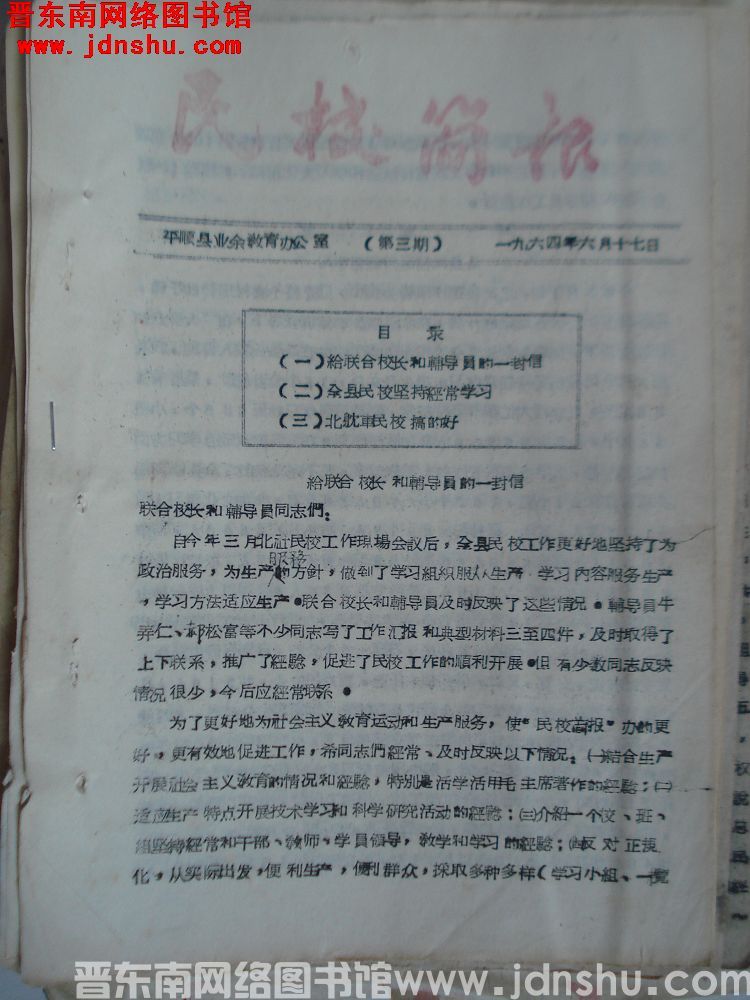 晋东南网络图书馆
www.jdnshu.com
民校简报
平顺县业余教育办公室 （第三期） 一九六四年六月十七日
目 录
（一）給联合校长和輔导員的一封信
（二）全县民校坚持經常学习
（三）北耽車民校搞的好
給联合校长和輔导員的一封信
联合校长和輔导員同志們：
自今年三月北社民校工作現場会议后，全县民校工作更好地坚持了为
政治服务，为生产服务的方針，做到了学习組織服从生产，学习内容服务生产
，学习方法适应生产。联合校长和輔导員及时反映了这些情况。輔导員牛
弄仁、郝松富等不少同志写了工作汇报和典型材料三至四件，及时取得了
上下联系，推广了經驗，促进了民校工作的順利开展。但有少数同志反映
情况很少，今后应經常联系。
为了更好地为社会主义教育运动和生产服务，使“民校简报”办的更
好，更有效地促进工作，希同志們經常、及时反映以下情况：㈠結合生产
开展社会主义教育的情况和經驗，特别是活学活用毛主席著作的經驗；㈡
适应生产特点开展技术学习和科学研究活动的經驗；㈢介紹一个校、班、
組坚持經常和干部、教师、学員領导，教学和学习的經驗；㈣反对正規
化，从实际出发，便利生产，便利群众，採取多种多样（学习小組、一揽
晋东南网络图书馆www.jdnshu.com